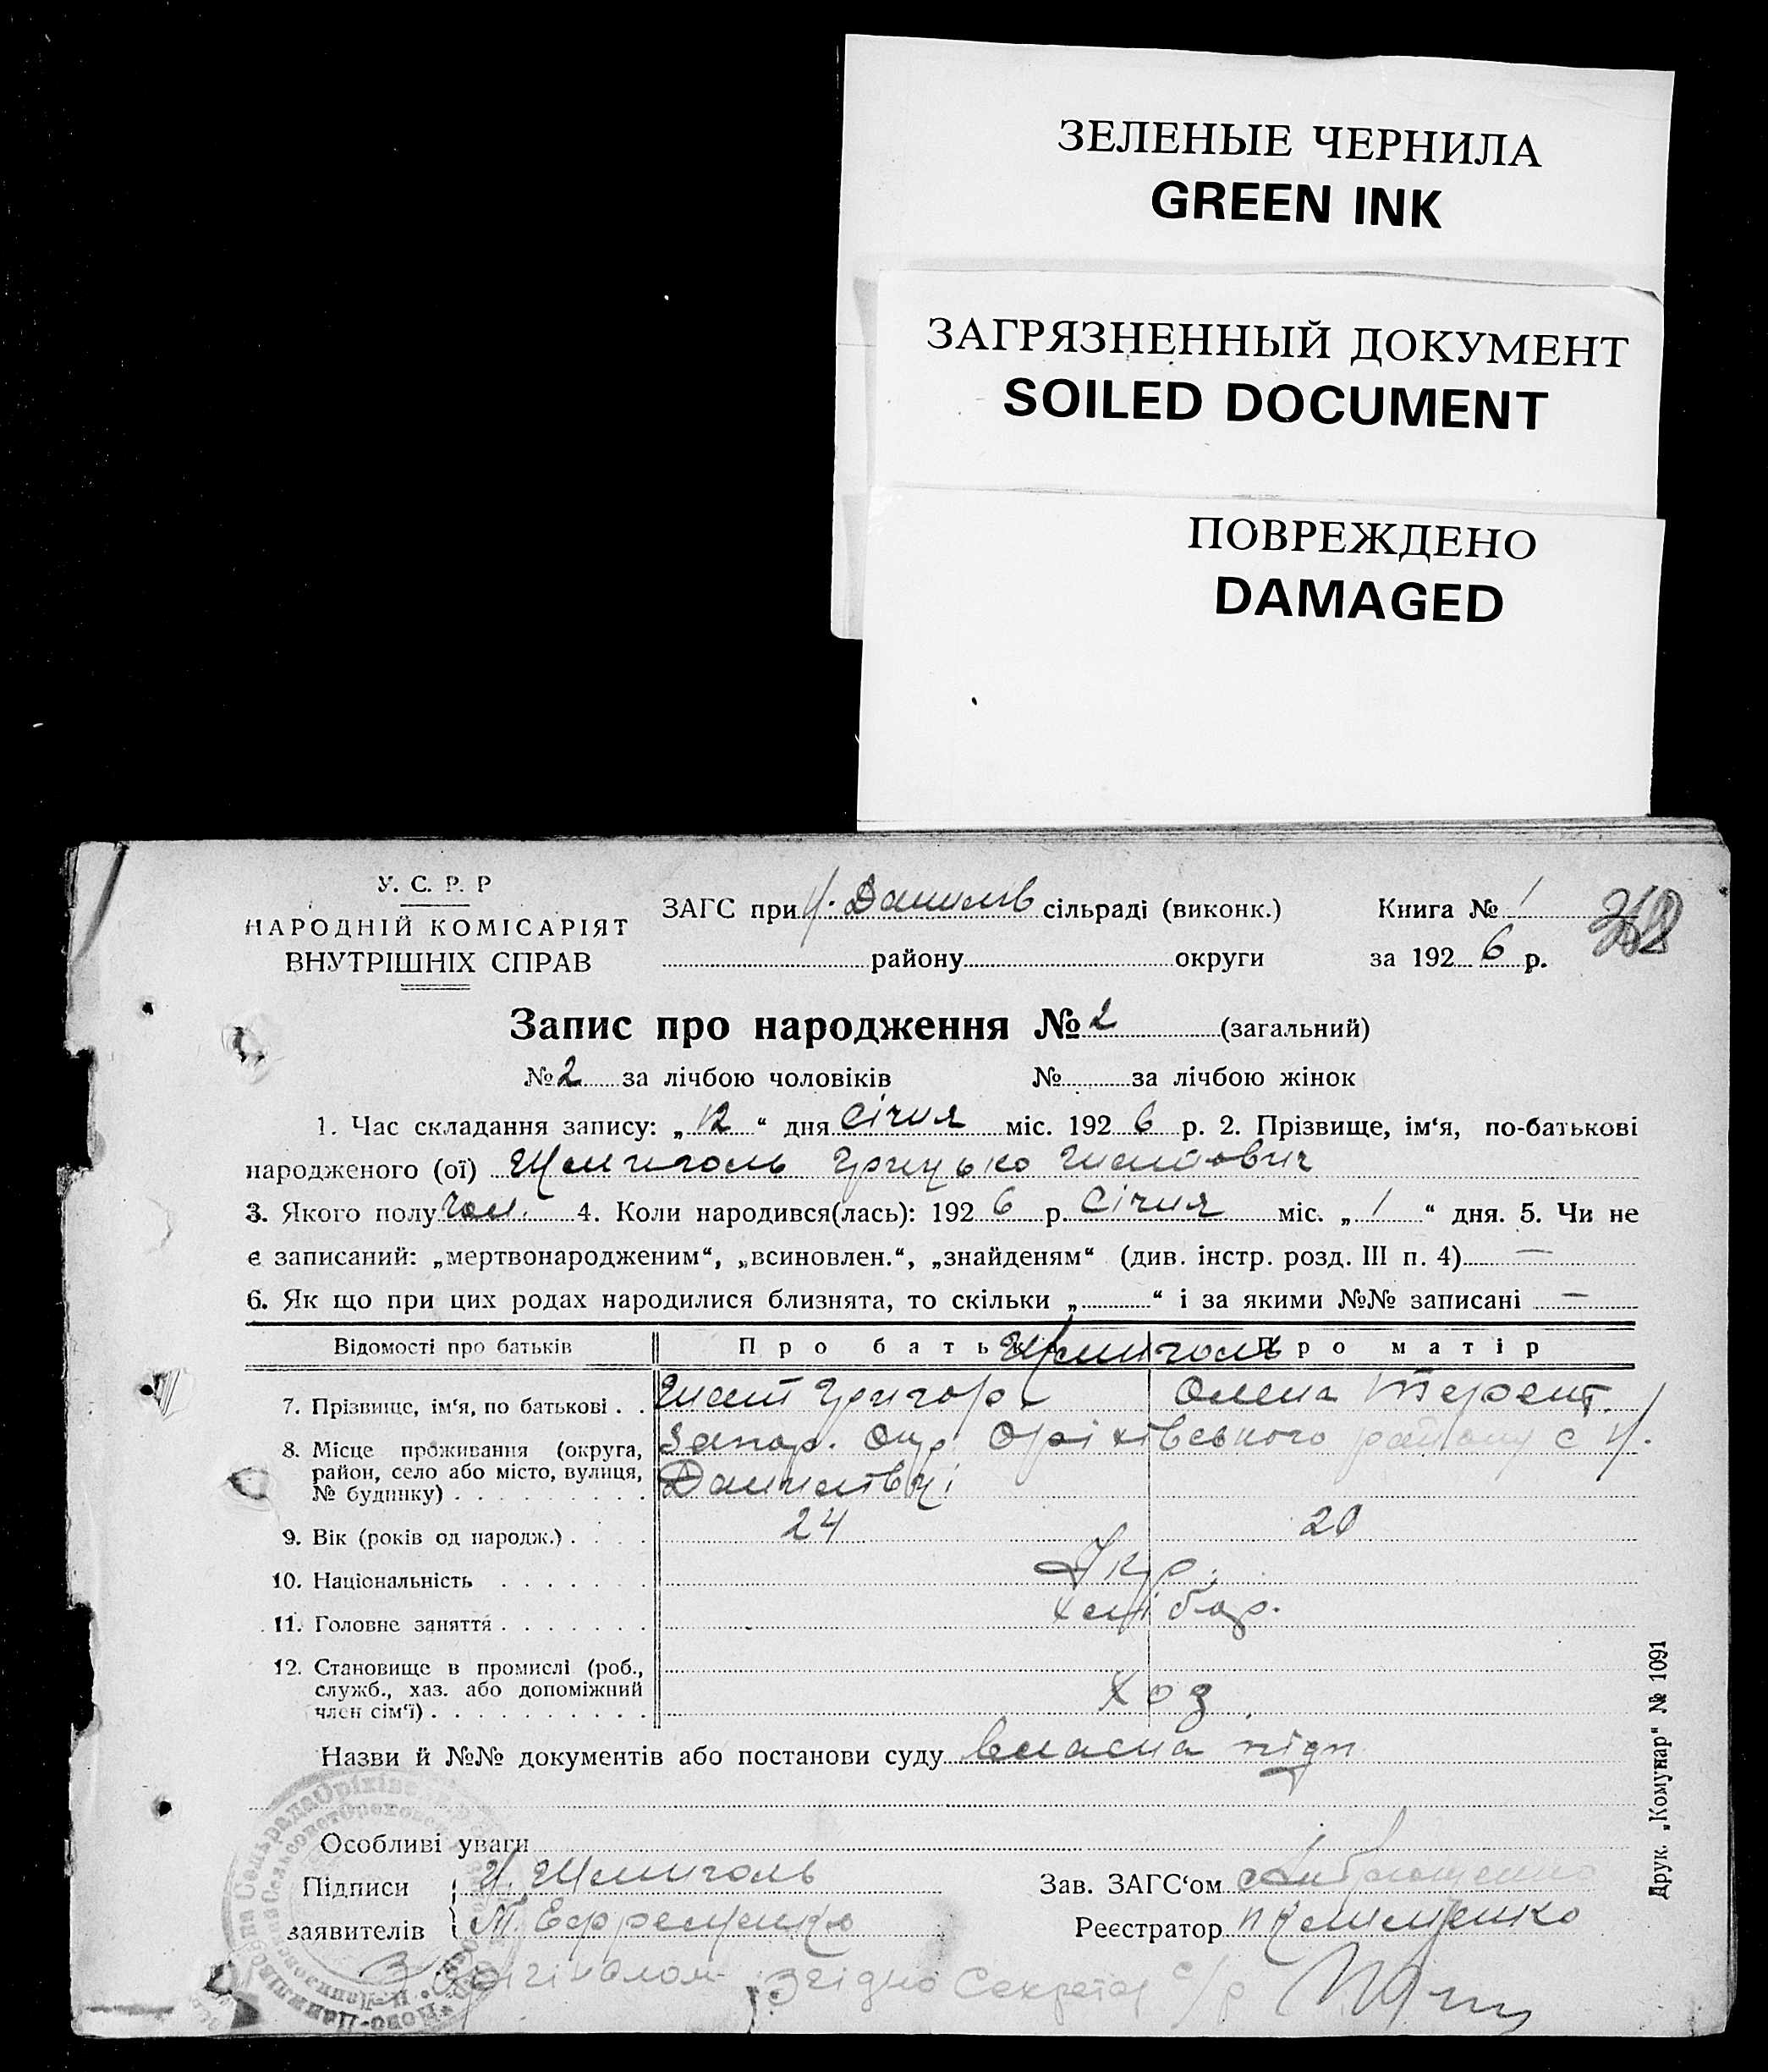 ЗЕЛЕНЫЕ ЧЕРНИЛА
GREEN INK
ЗАГРЯЗНЕННЫЙ ДОКУМЕНТ
SOILED DOCUMENT
ПОВРЕЖДЕНО
DAMAGED
У. С. Р. Р
НАРОДНІЙ КОМІСАРІЯТ
ВНУТРІШНІХ СПРАВ
ЗАГС при Н. Данилів сільраді (виконк.) Книга № 1
району округи за 1926 р.
Запис про народження № 2 (загальний)
№ 2 за лічбою чоловіків № за лічбою жінок
1. Час складання запису: „12“ дня Січня міс. 1926 р. 2. Прізвище, ім‘я, по-батькові
народженого (ої) Щемиголь Грицько
3. Якого полу Чол. 4. Коли народився(лась): 1926 р. Січня міс. „1“ дня. 5. Чи не
є записаний: „мертвонародженим“, „всиновлен.“, „знайденям“ (див. інстр. розд. III п. 4) —
6. Як що при цих родах народилися близнята, то скільки „ “ і за якими №№ записані —
Відомості про батьків Про батька Про матір
Щемиголь
7. Прізвище, ім‘я, по батькові . . Григор Олена Терент.
8. Місце проживання (округа, район, село або місто, вулиця, № будинку) Запор. Окр. Оріхівського району с Н.
Данилівці
9. Вік (років од народж.) 24 20
10. Національність Укр.
11. Головне заняття Хлібор.
12. Становище в промислі (роб., служб., хаз. або допоміжний член сім‘ї) Хоз.
Назви й №№ документів або постанови суду власна підп
Особливі уваги
Підписи Щемиголь Зав. ЗАГС‘ом
заявителів М. Ефременко Реєстратор П Клименко
З Оригіналом Згідно Секретар с/р
Друк. „Комунар“ № 1091